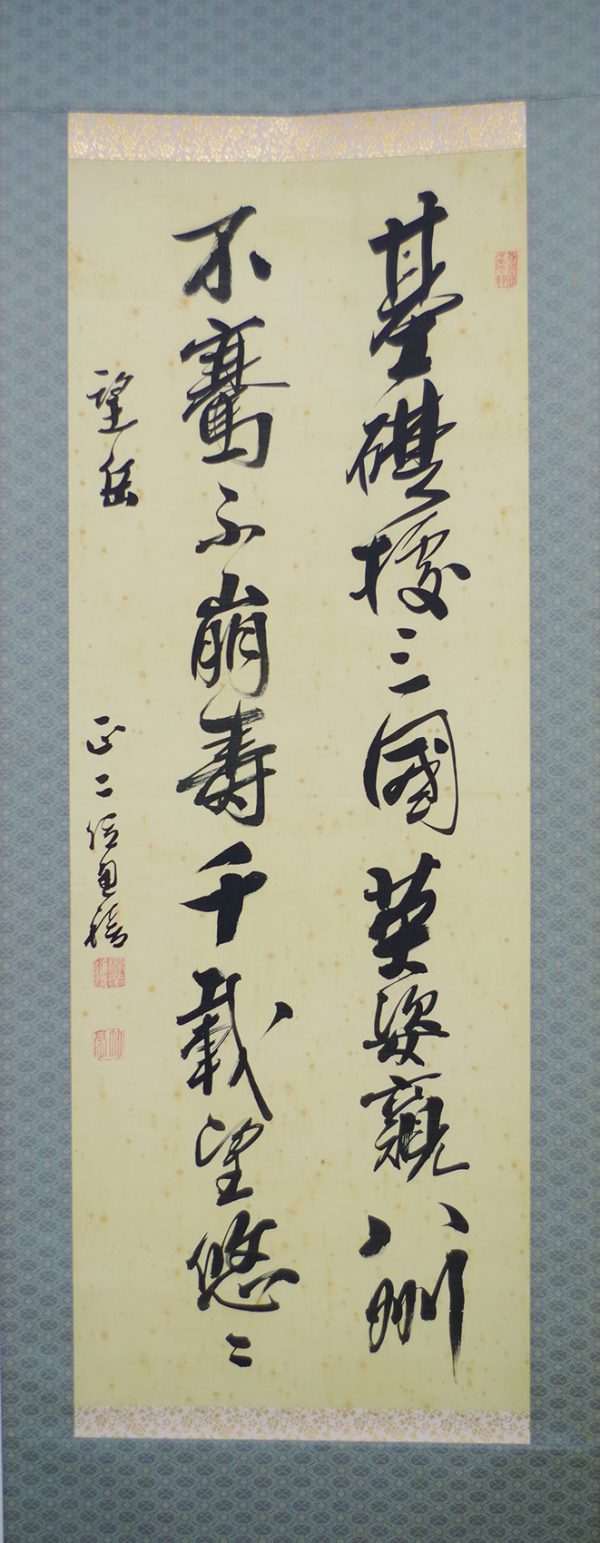 基礎據三國英姿八州
不騫不崩壽千載望悠〻
望岳
正二位通禧